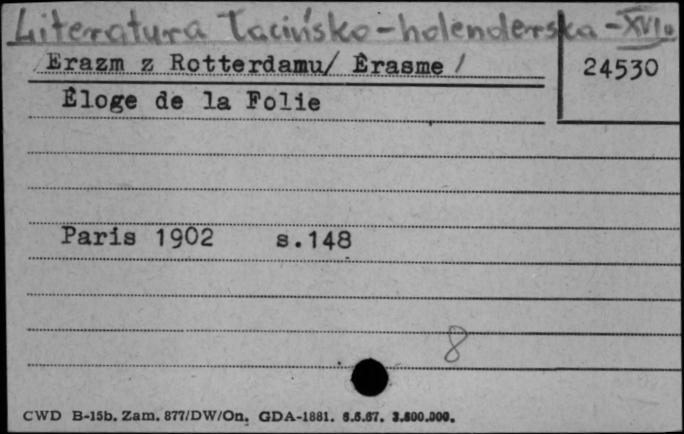 Literatura łacińsko-holenderska - XVI w
Erazm z Rotterdamu/ Êrasme /
24530
Êloge de la Folie
Paris 1902 s.148
8
CWD B-15b. Zam. 877/DW/On. GDA-1881. 6.6.67. 3.600.000.